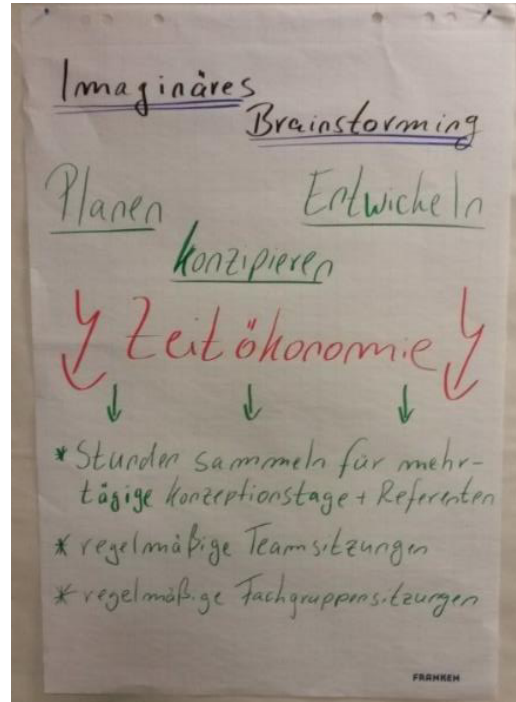 Imaginäres
Brainstorming
Planen Entwickeln
konzipieren
Zeitökonomie
* Stunden sammeln für mehr-
tägige Konzeptionstage + Referenten
* regelmäßige Teamsitzungen
* regelmäßige Fachgruppensitzungen
FRANKEN